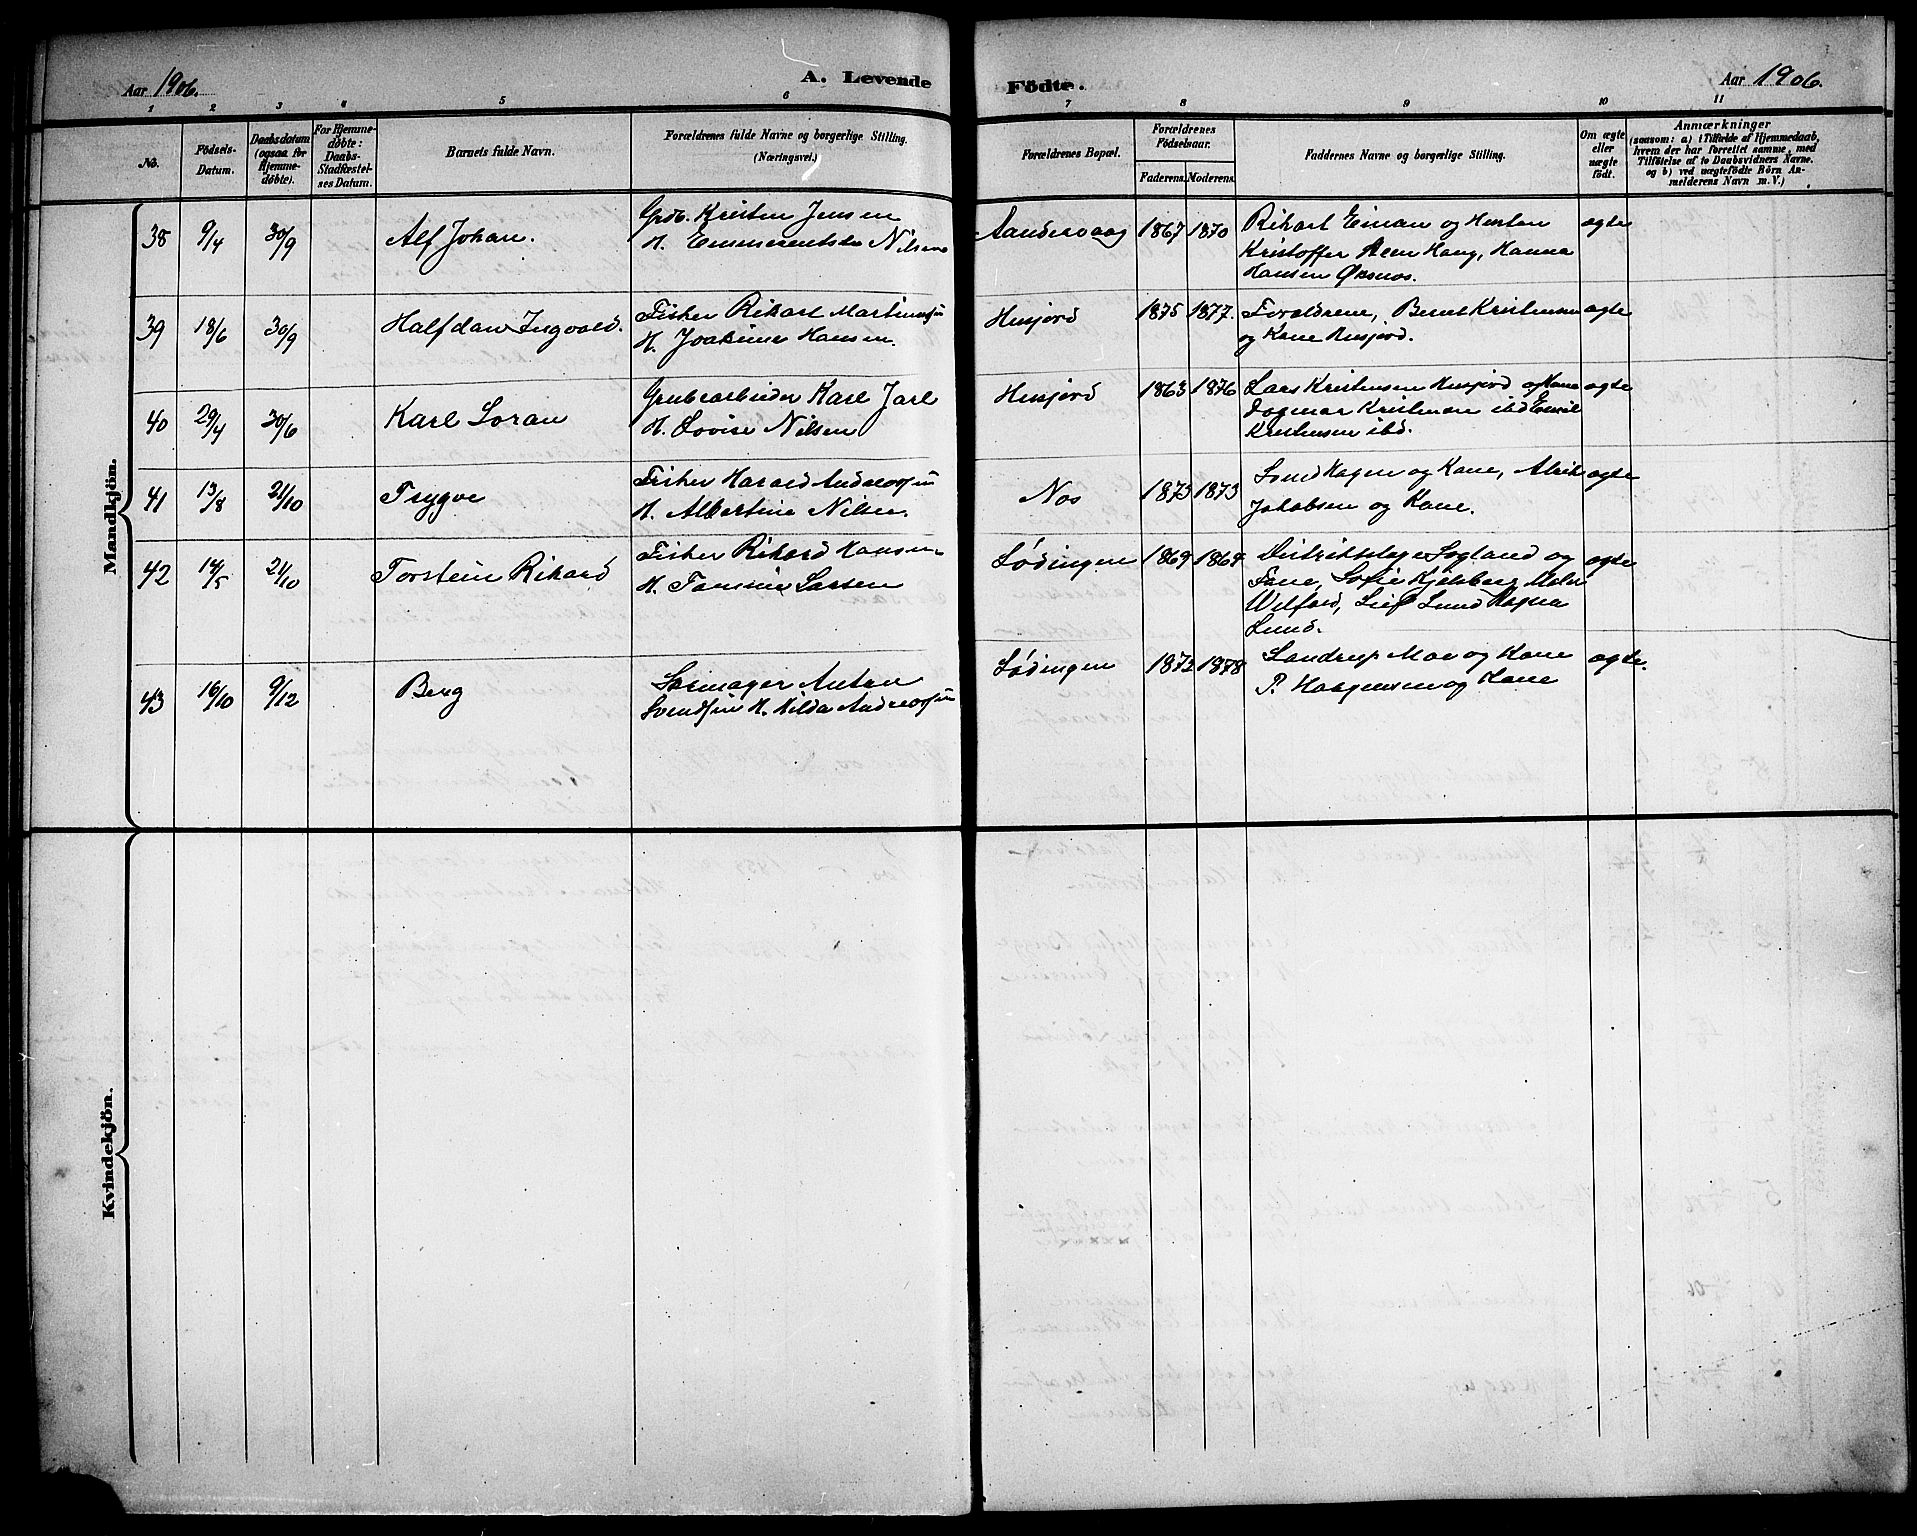 Aar 1906.
A. Levende
Födte.
Aar 1906.
1 2 3 4 5 6 7 8 9 10 11
No.
Födsels-
Datum.
Daabsdatum
(ogsaa for
Hjemme-
döbte).
For Hjemme-
döbte:
Daabs-
Stadfæstel-
ses Datum.
Barnets fulde Navn.
Forældrenes fulde Navne og borgerlige Stilling.
(Næringsvei.)
Forældrenes Bopæl.
Forældrenes
Födselsaar.
Faderens. Moderens.
Faddernes Navne og borgerlige Stilling.
Om ægte
eller
uægte
födt.
Anmærkninger
(saasom: a) i Tilfælde af Hjemmedaab,
hvem der har forrettet samme, med
Tilföielse af to Daabsvidners Navne.
og b) ved uægtefödte Börn An-
melderens Navn m. V.)
Mandkjön.
38 9/4 30/9 Alf Johan. Grdb. Kristen Jensen
H. Emmerentse Nilsen
Sandervaag 1867 1870 Rikart Einan og Husten ægte
Kristoffer Rem Haug, Hanna
Hansen Øksnes.
39 18/6 30/9 Halfdan Ingvald. Fisker Rikart Martinussen
H. Joakime Hansen.
Husjord 1875 1877. Forældrene, Bernt Kristensen ægte
og Kone Husjord.
40 29/4 30/6 Karl Soran Grubearbeider Karl Jarl
H. Lovise Nilsen
Husjord 1863 1876 Lars Kristensen Husjord og Kone ægte
Dagmar Kristensen ibd Emil
Kristensen ibd.
41 13/8 21/10 Trygve Fisker Harald Andreassen
H. Albertine Nilsen.
Nes 1873 1873 Svend Hagen og Kone, Alrik ægte
Jakobsen og Kone.
42 14/5 21/10 Torstein Rikard Fisker Rikard Hansen
H. Tomine Larsen
Lødingen 1869 1869 Distriktslæge Sogland og ægte
Frue, Sofie Kjelsberg,
Wilfard, Leif Lund Ragna
Lund.
43 16/10 9/12 Berg Anton
Svendsen H. Hilda Andreassen
Lødingen 1872 1878 Sandrup Moe og Kone ægte.
P. Haagensen og Kone
Kvindekjön.